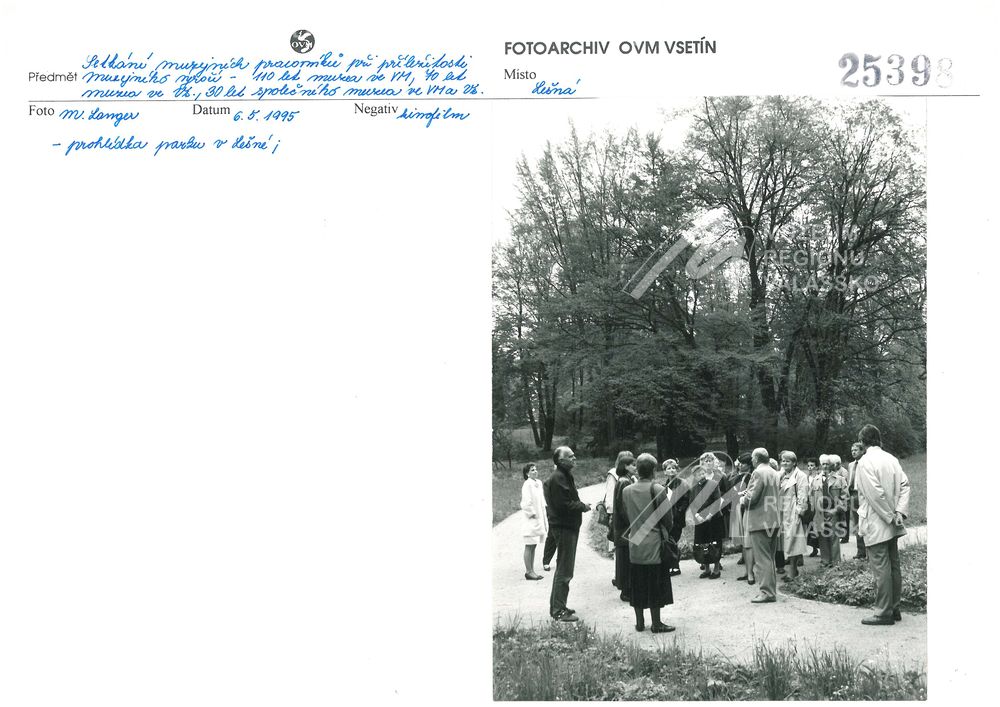 OVM
FOTOARCHIV OVM VSETÍN
Předmět Setkání muzejních pracovníků při příležitosti
muzejního výročí - 110 let muzea ve VM, 70 let
muzea ve Vs., 30 let společného muzea ve VM a Vs.
Místo Lešná
25398
Foto M. Langer Datum 6. 5. 1995 Negativ kinofilm
- prohlídka parku v Lešné;
MUZEUM
REGIONU
VALAŠSKO
MUZEUM
REGIONU
VALAŠSKO